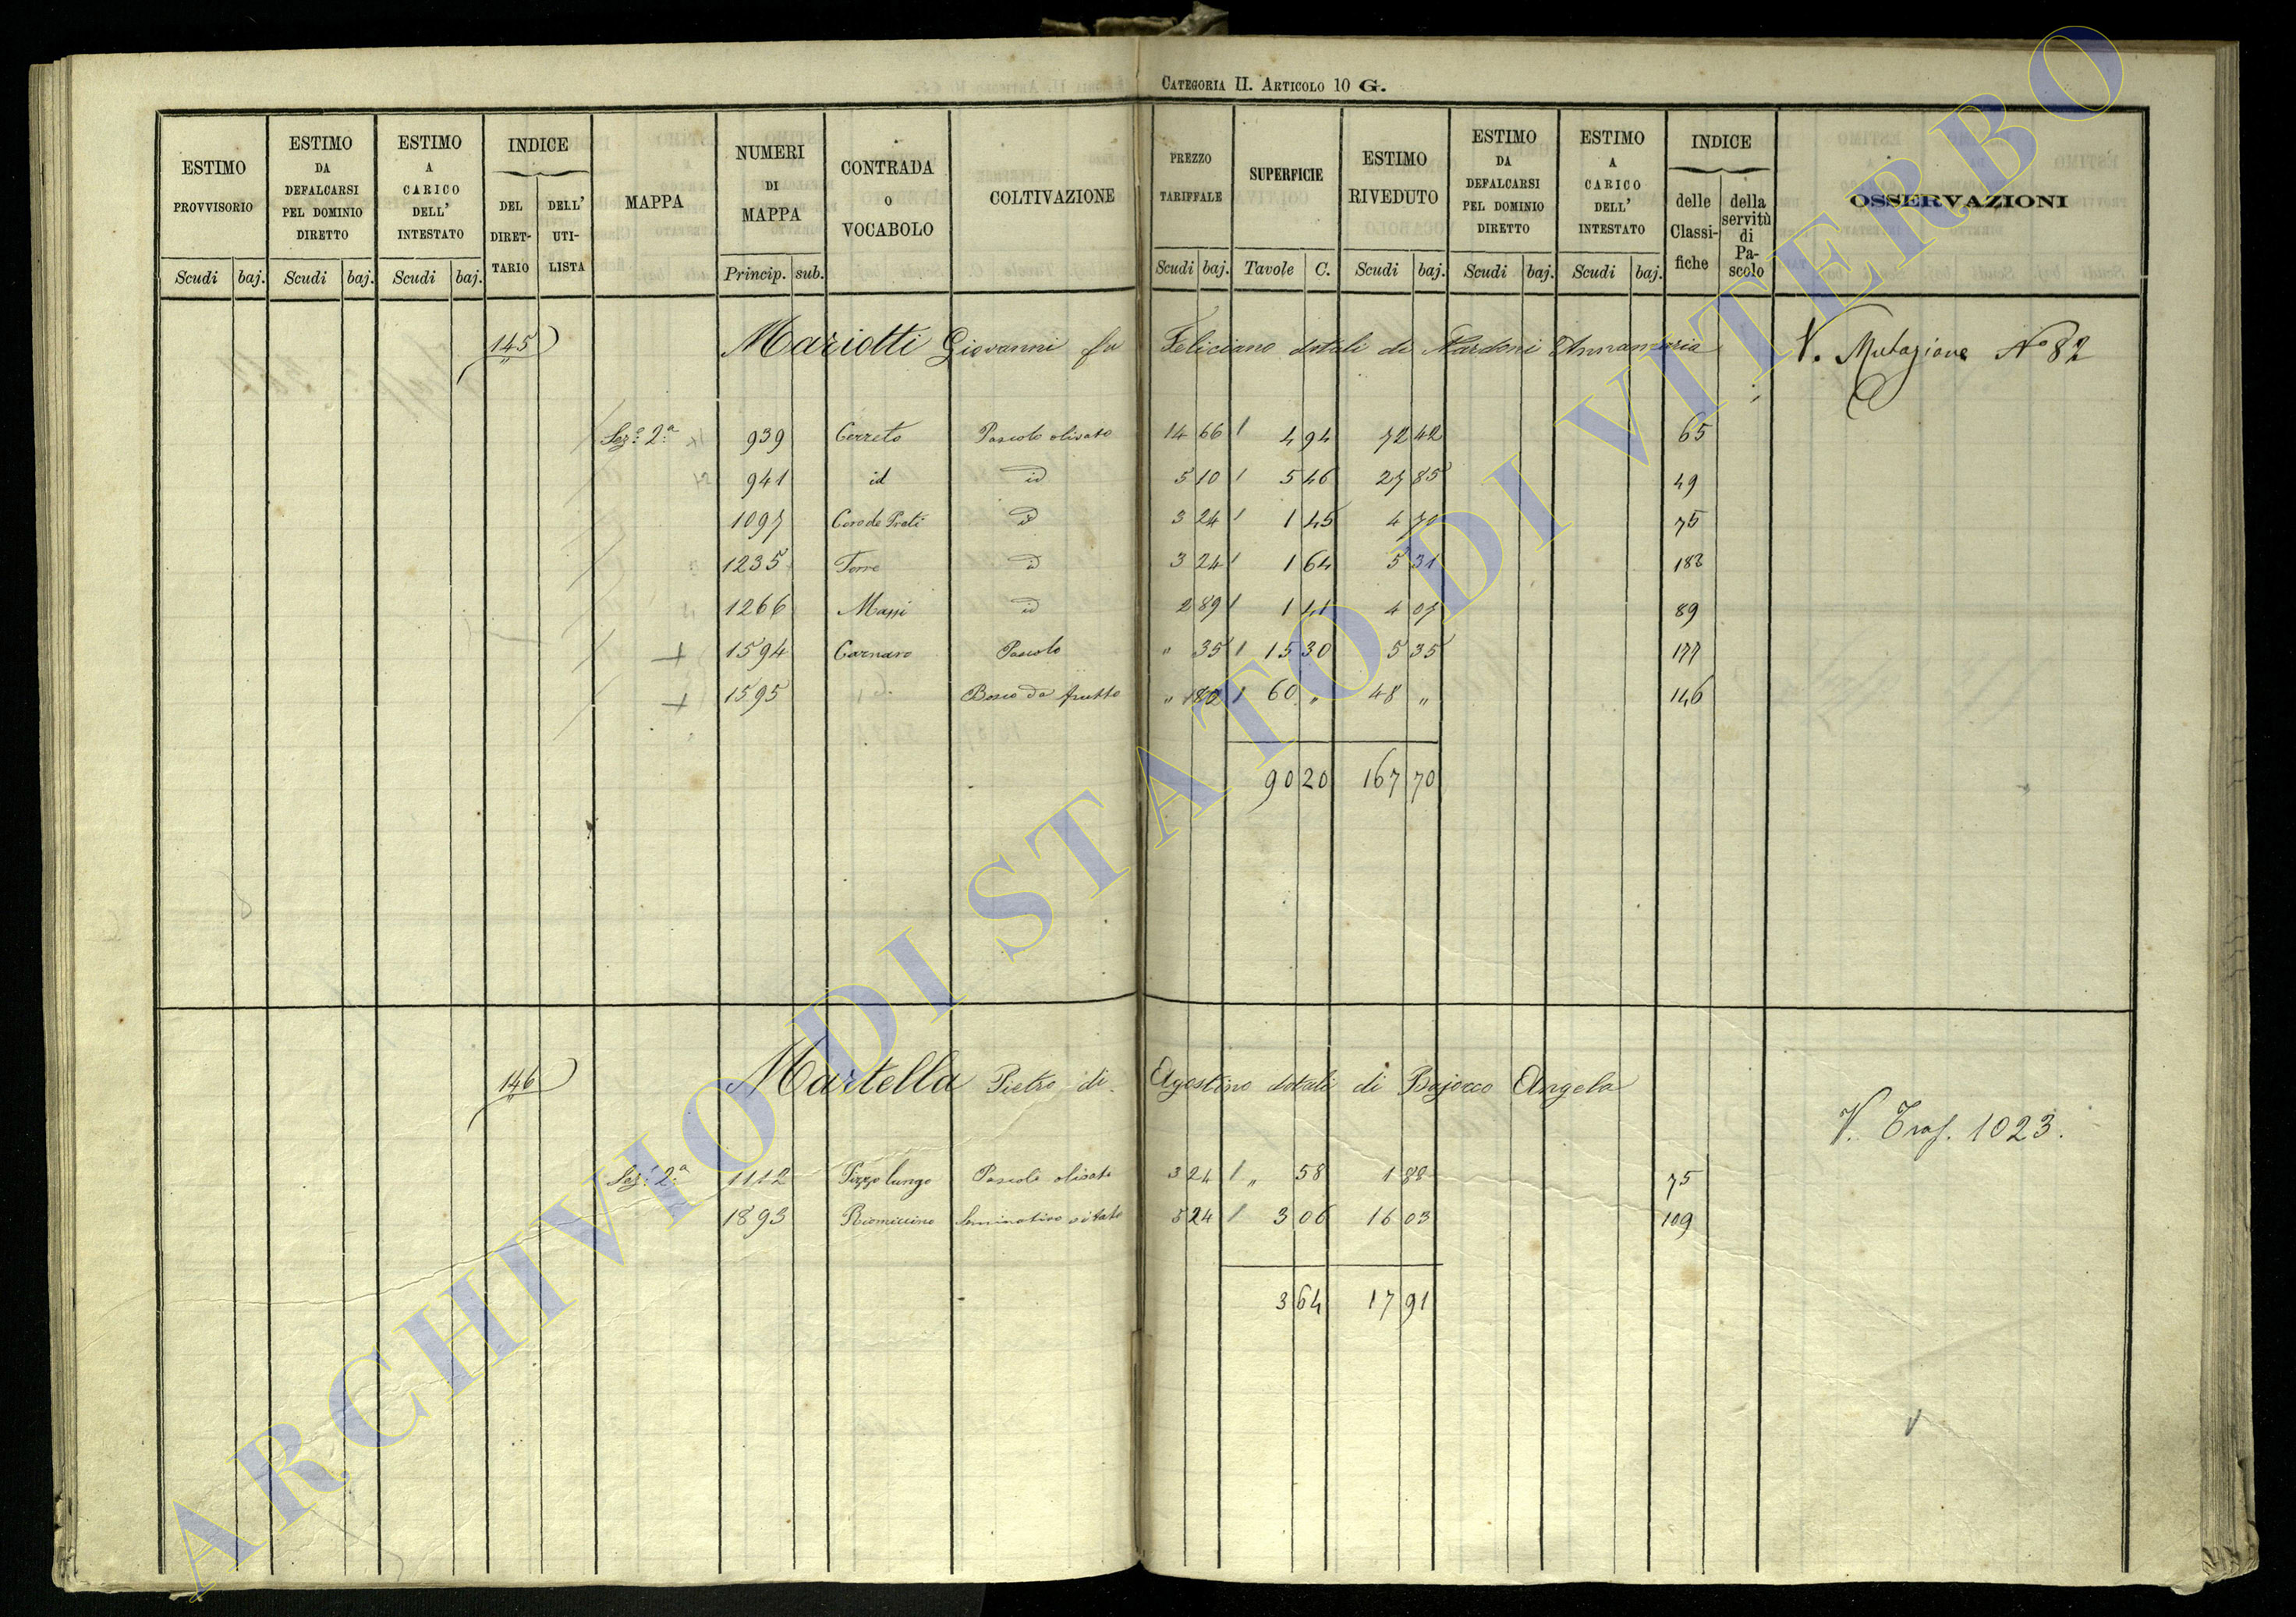 CATEGORIA II. ARTICOLO 10 G.
ESTIMO PROVVISORIO Scudi baj. ESTIMO DA DEFALCARSI PEL DOMINIO DIRETTO Scudi baj. ESTIMO A CARICO DELL' INTESTATO Scudi baj. INDICE DEL DIRETTARIO DELL' UTILISTA MAPPA NUMERI DI MAPPA Princip. sub. CONTRADA O VOCABOLO COLTIVAZIONE PREZZO TARIFFALE Scudi baj. SUPERFICIE Tavole C. ESTIMO RIVEDUTO Scudi baj. ESTIMO DA DEFALCARSI PEL DOMINIO DIRETTO Scudi baj. ESTIMO A CARICO DELL' INTESTATO Scudi baj. INDICE delle Classifiche della servitù di Pascolo OSSERVAZIONI
145 Mariotti Giovanni fu Feliciano dotali di Nardoni Annamaria V. Mutazione N° 82
Sez.e 2.a 939 Cerreto Pascolo olivato 14 66 4 94 72 42 65
941 id id 5 10 5 46 27 85 49
1097 Prati id 3 24 1 45 4 70 75
1235 Torre id 3 24 1 64 5 31 182
1266 Massi id 2 89 1 41 4 07 89
+ 1594 Carnaro Pascolo " 35 15 30 5 35 177
+ 1595 Bosco da frutto " 60 " 48 " 146
90 20 167 70
146 Martella Pietro di Agostino dotali di Bajocco Angela
V. Trasf. 1023.
Sez.e 2.a 1112 Pizzo lungo Pascolo olivato 3 24 " 58 1 88 75
1893 Riomiccino Seminativo vitato 5 24 3 06 16 03 109
3 64 17 91
ARCHIVIO DI STATO DI VITERBO